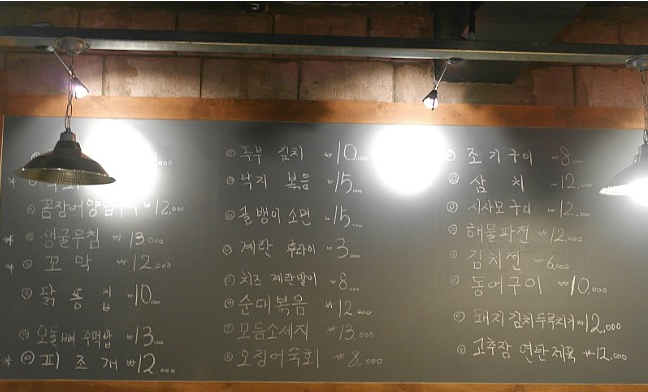 ,000
꼼장어양념구이 ₩12,000
* 생굴무침 ₩13,000
* 꼬막 ₩12,000
닭똥집 ₩10,000
오돌뼈 주먹밥 ₩13,000
* 피조개 ₩12,000
두부 김치 ₩10,000
낙지 볶음 ₩15,000
골뱅이 소면 ₩15,000
계란 후라이 ₩3,000
치즈 계란말이 ₩8,000
순대볶음 ₩12,000
모듬소세지 ₩13,000
오징어숙회 ₩8,000
조기구이 ₩8,000
삼치 ₩12,000
시사모구이 ₩12,000
해물파전 ₩12,000
김치전 ₩6,000
동어구이 ₩10,000
돼지김치두루치기 ₩12,000
고추장 연탄제육 ₩12,000